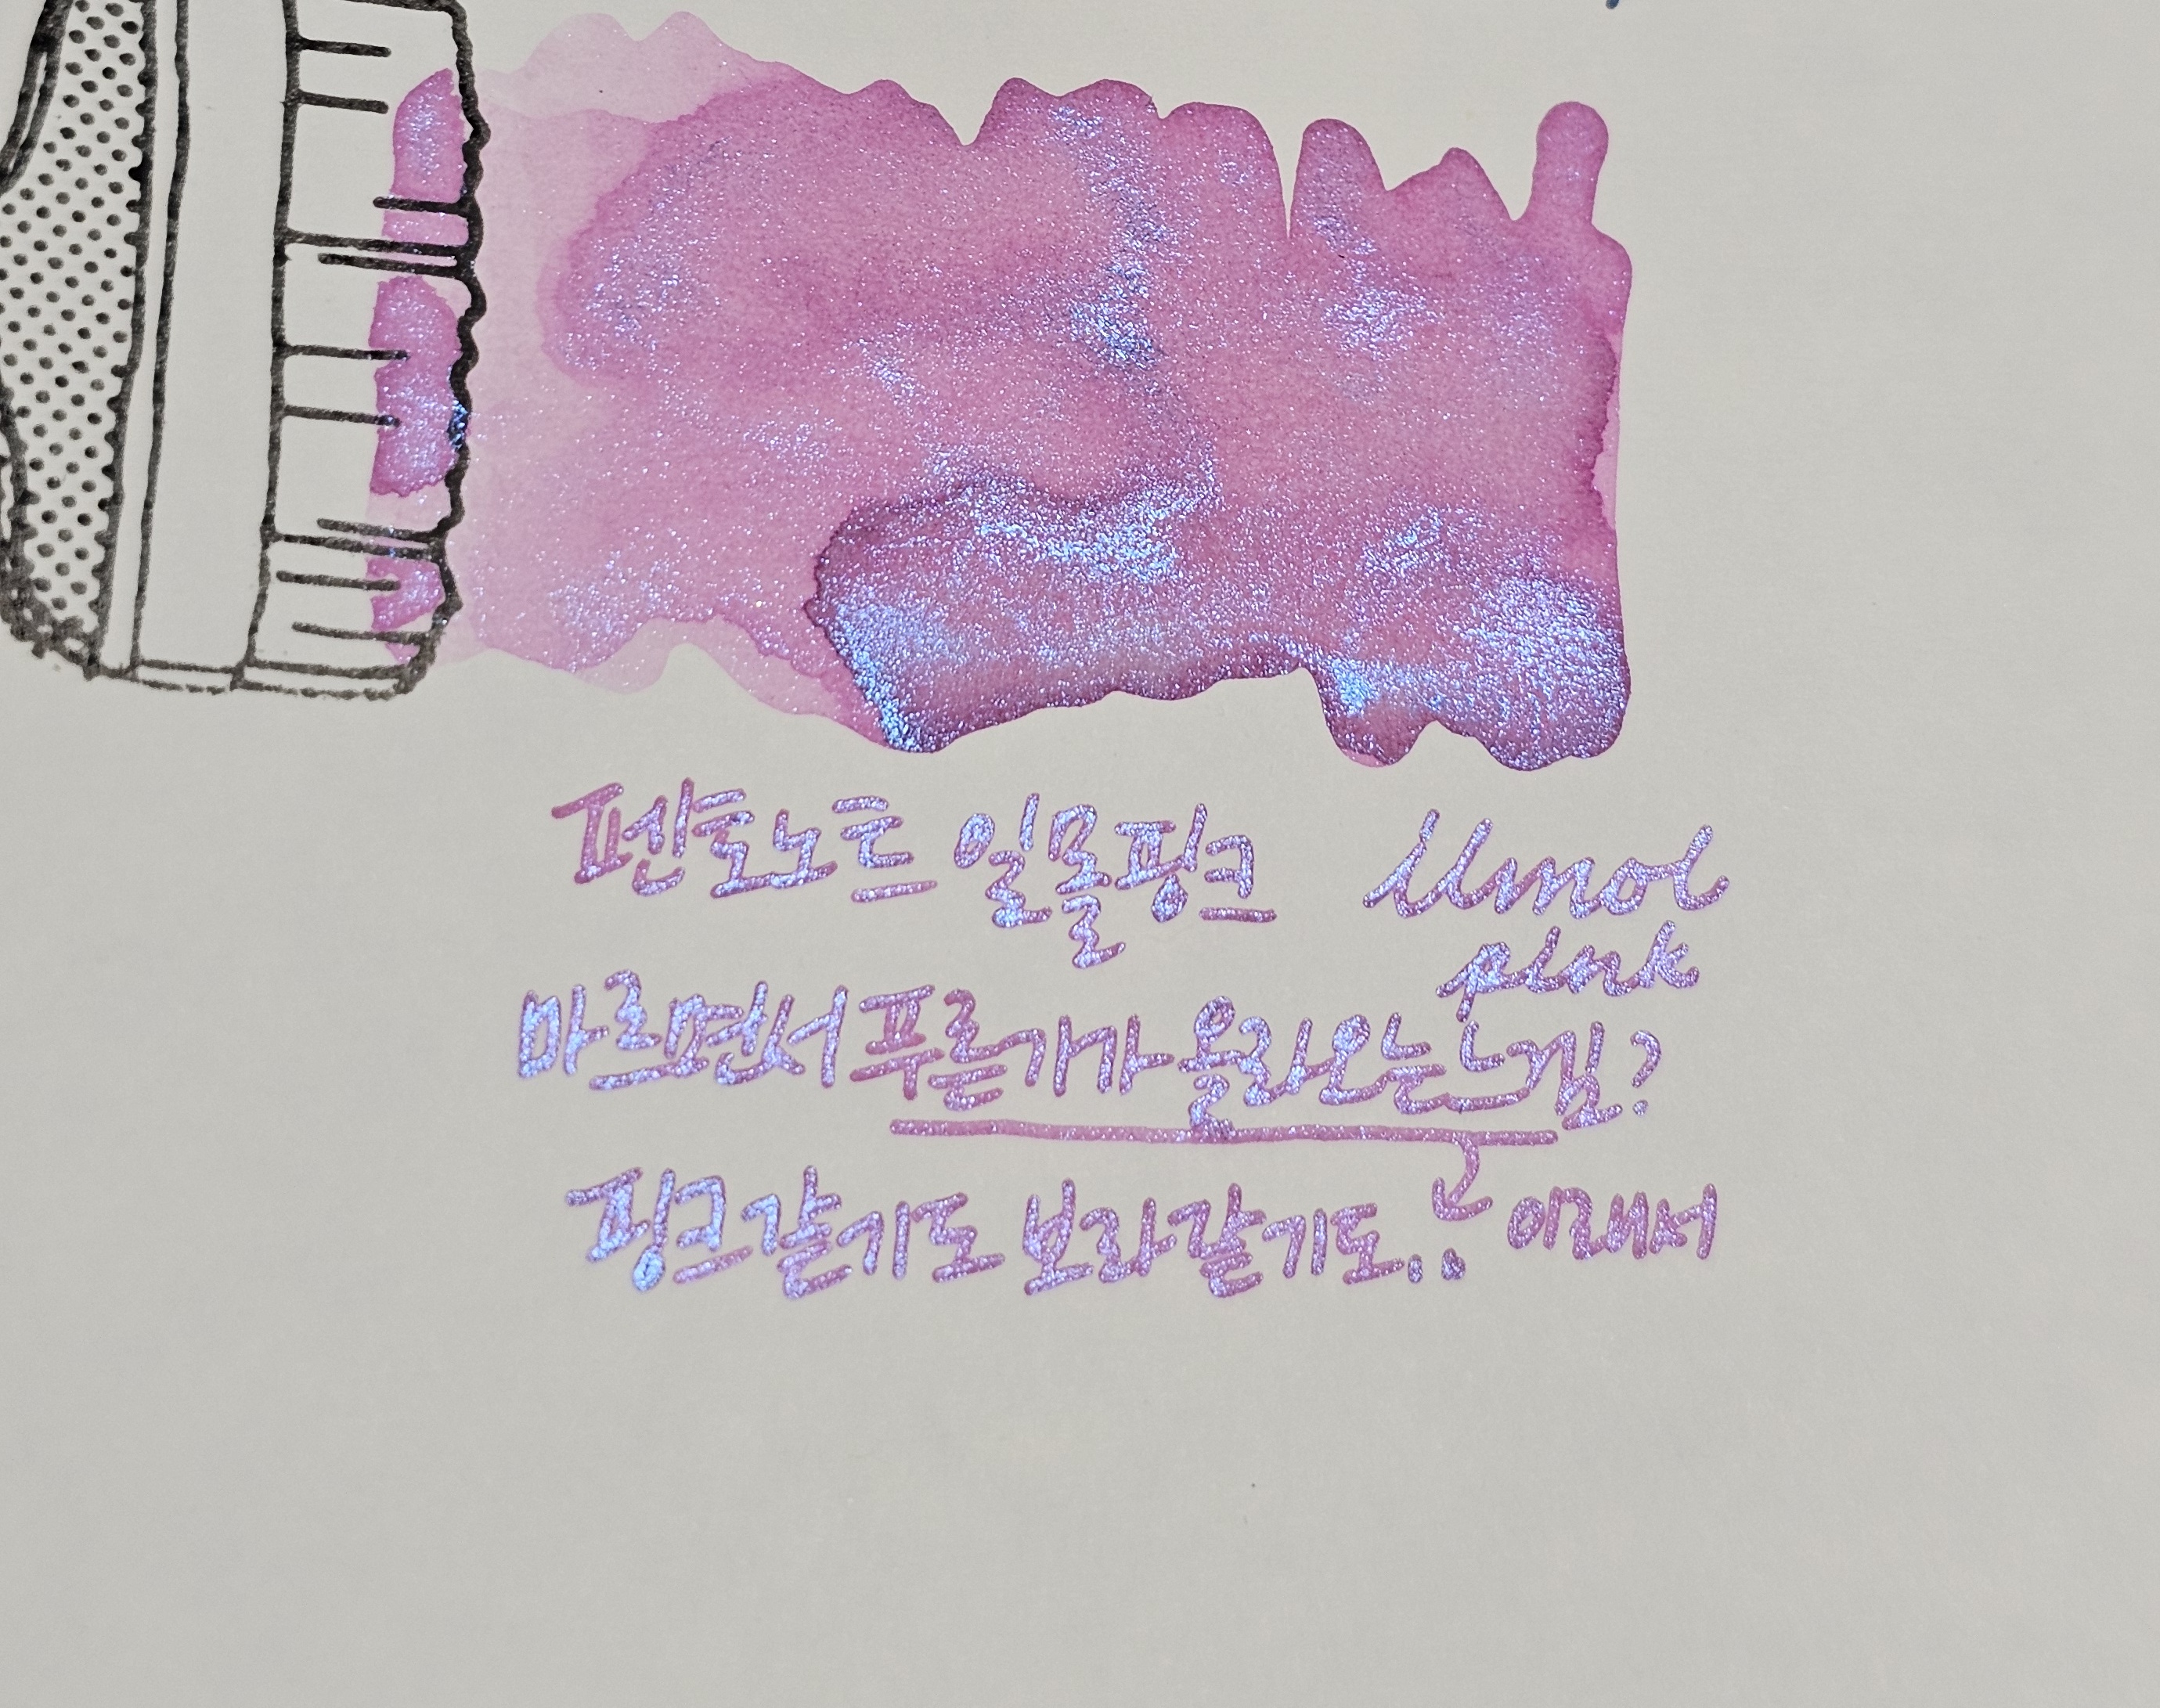 펜토노트 일몰핑크 Ilmol
pink
마르면서 푸른기가 올라오는 느낌?
핑크같기도 보라같기도.. 이래서